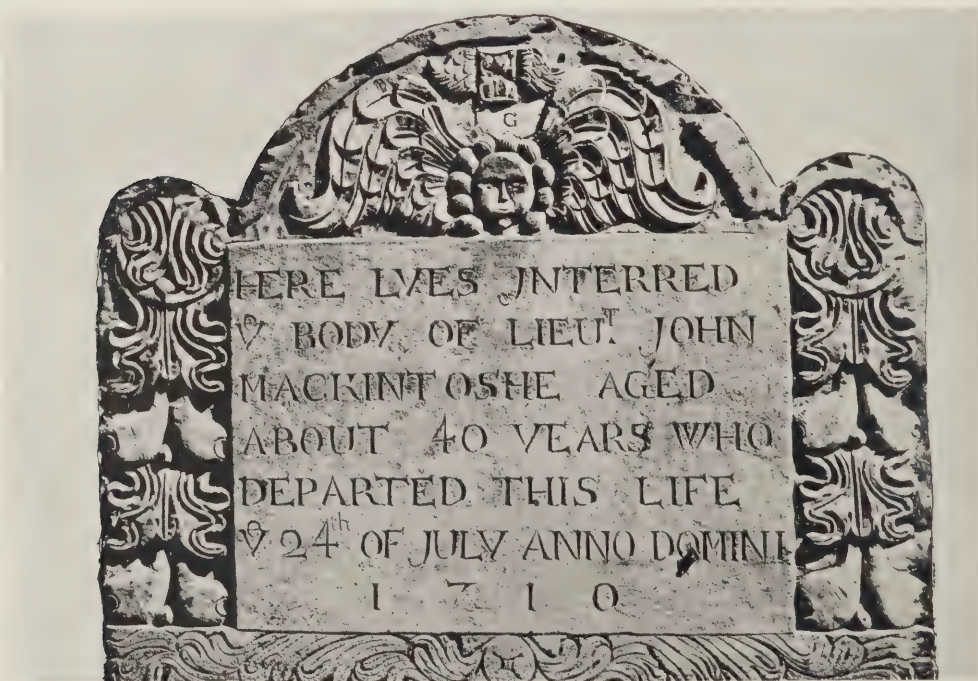 G
HERE LYES JNTERRED
Yᵉ BODY OF LIEUᵀ. JOHN
MACKINTOSHE AGED
ABOUT 40 YEARS WHO
DEPARTED THIS LIFE
Yᵉ 24ᵗʰ OF JULY ANNO DOMINI
1710